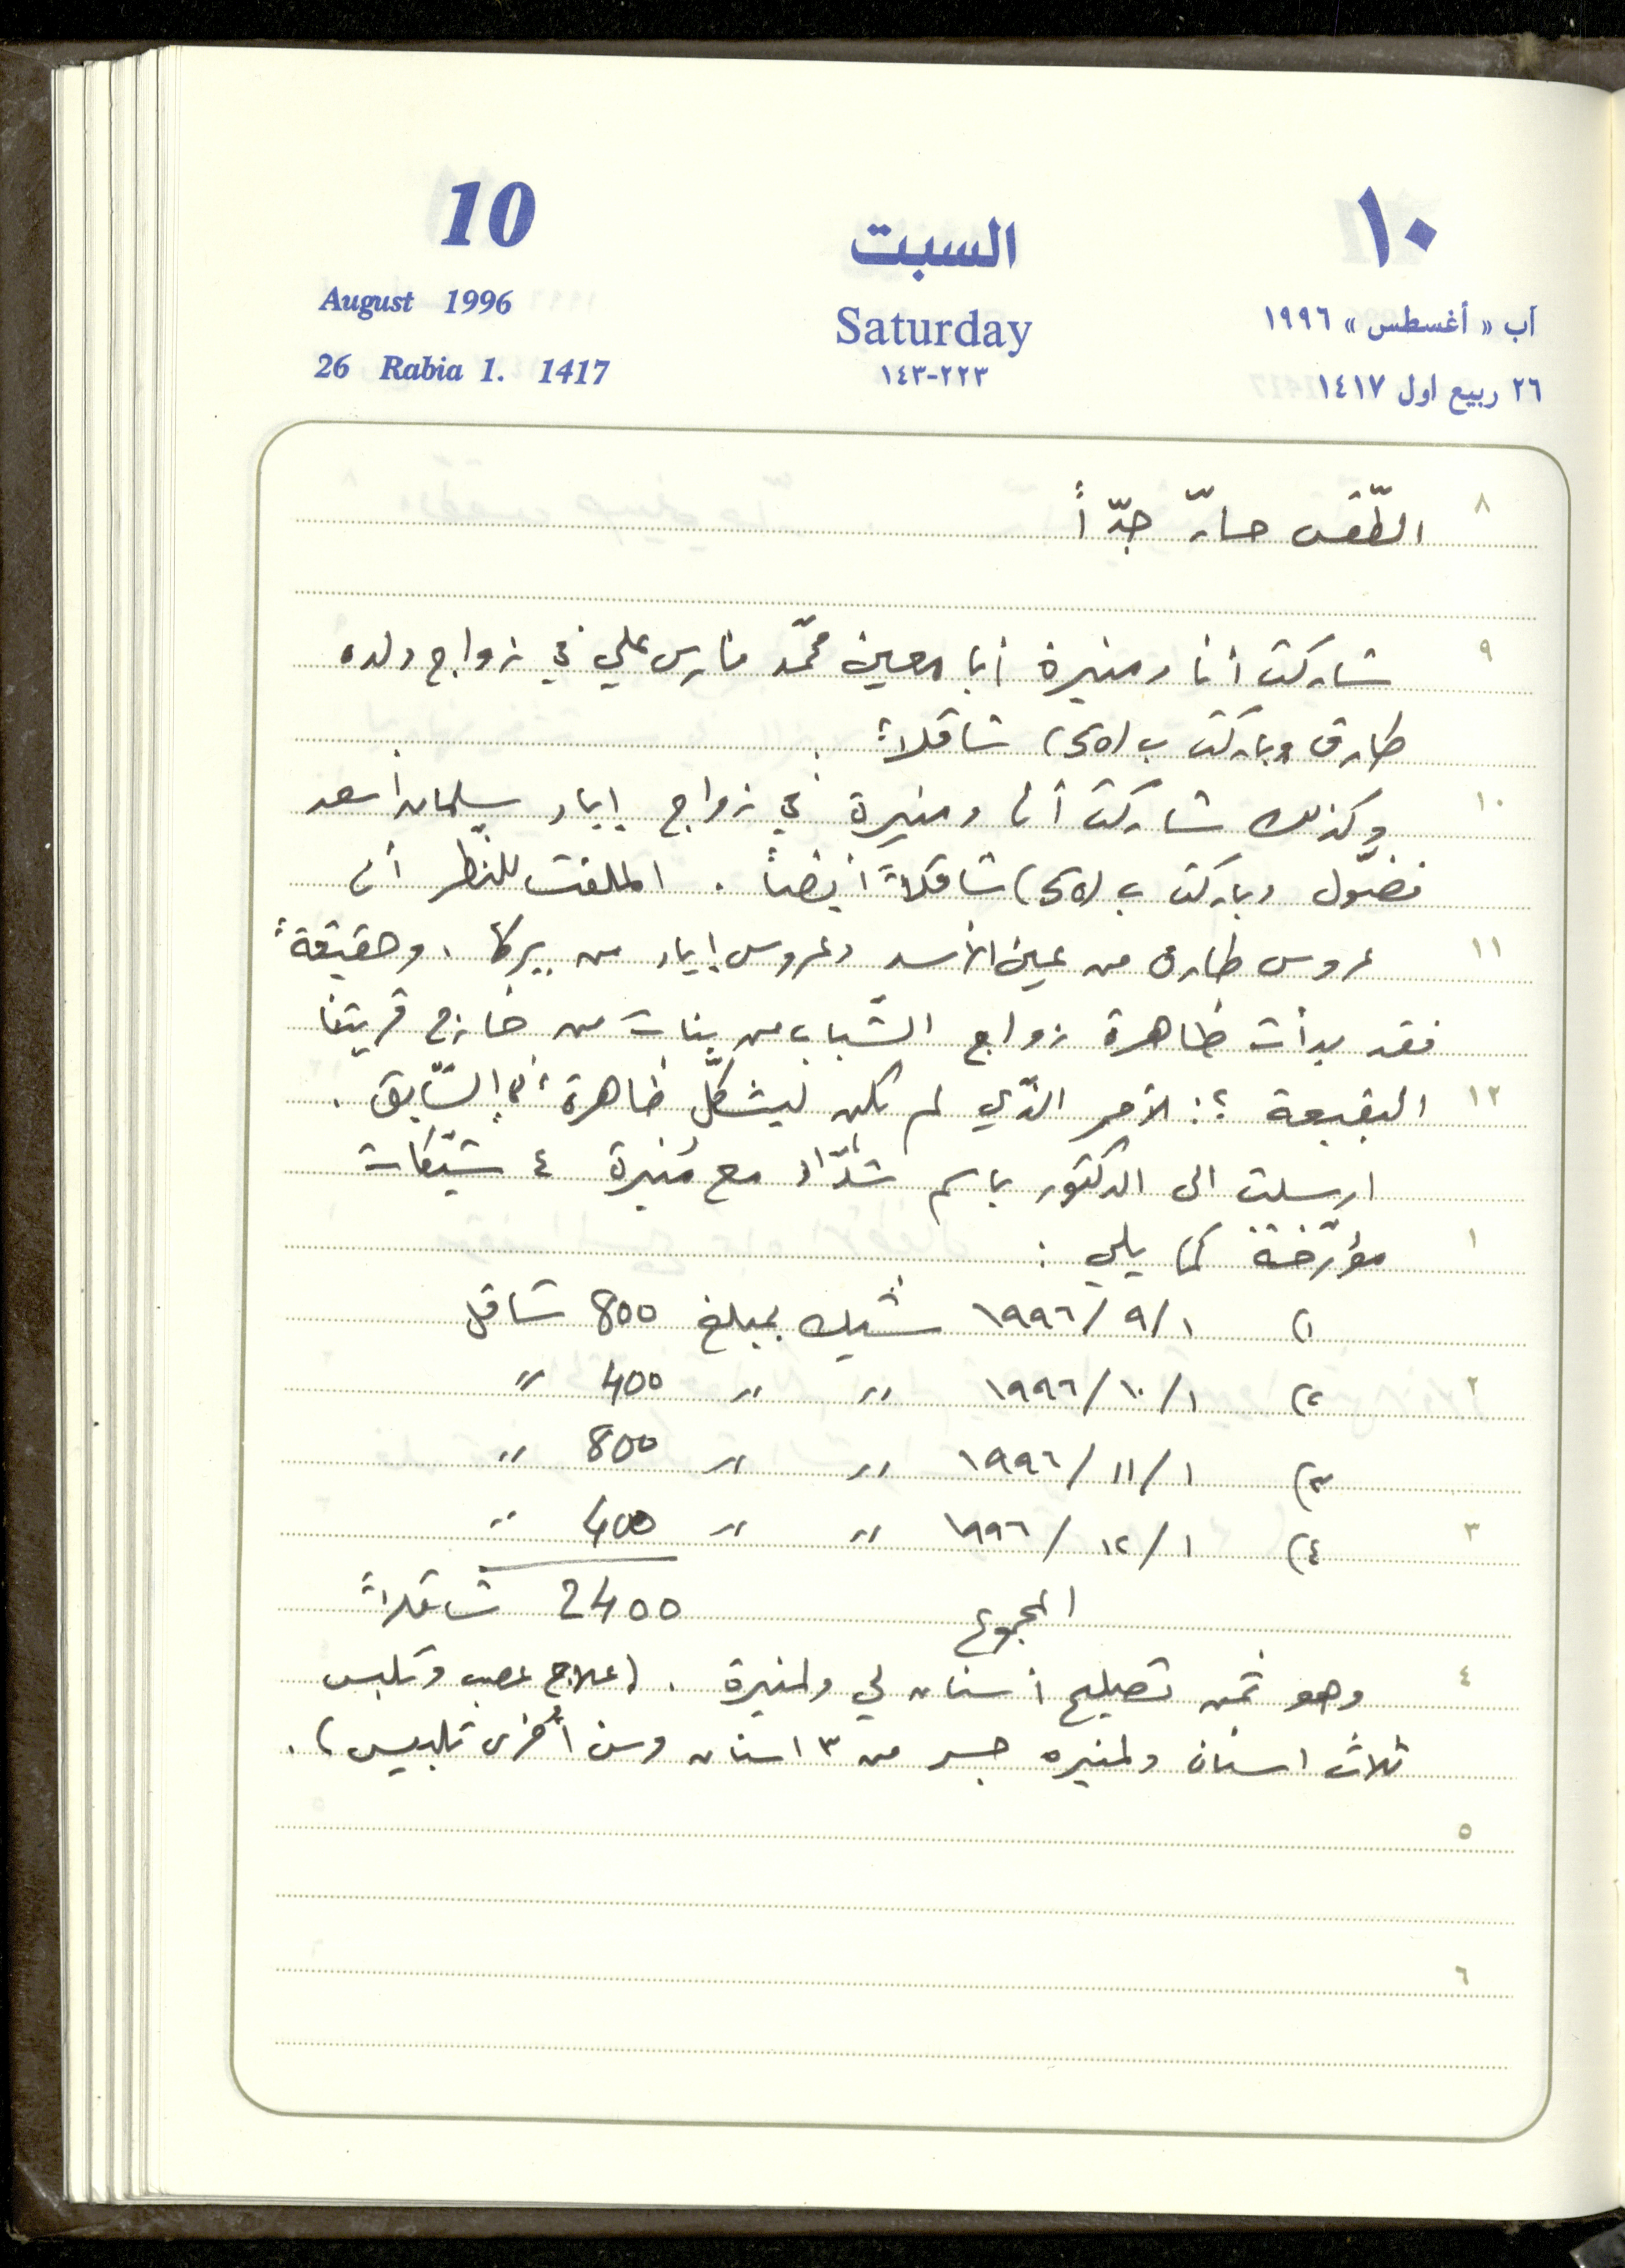 10
السبت
١٠
August 1996
Saturday
آب « أغسطس » ١٩٩٦
26 Rabia 1. 1417
١٤٣-٢٢٣
٢٦ ربيع اول ١٤١٧
٨ الطّقس حارّ جدّاً
٩ شاركت أنا ومنيرة أبا معين محمّد فارس علي في زواج ولده
طارق وباركت ب (50) شاقلاً .
١٠ وكذلك شاركت أنا ومنيرة في زواج إياد سلمان أسعد
فضّول وباركت ب (50) شاقلاً أيضاً . الملفت للنّظر أن
١١ عروس طارق من عين الأسد وعروس إياد من يركا . وحقيقةً
فقد بدأت ظاهرة زواج الشّباب من بنات من خارج قريتنا
١٢ البقيعة ؟! الأمر الذّي لم يكن ليشكّل ظاهرة في السّابق .
ارسلت الى الدكتور باسم شدّاد مع مُنيرة ٤ شيّكات
١ مؤرّخة كما يلي :
١) ١/٩/١٩٩٦ شيك بمبلغ 800 شاقل
٢ ٢) ١/١٠/١٩٩٦ " " 400 "
٣) ١/١١/١٩٩٦ " " 800 "
٣ ٤) ١/١٢/١٩٩٦ " " 400 "
المجموع 2400 شاقلاً
٤ وهو ثمن تصليح أسنان لي ولمنيرة . (علاج عصب وتلبيس
ثلاث اسنان ولمنيره جسر من ٣ اسنان وسن أُخرى تلبيس) .
٥
٦